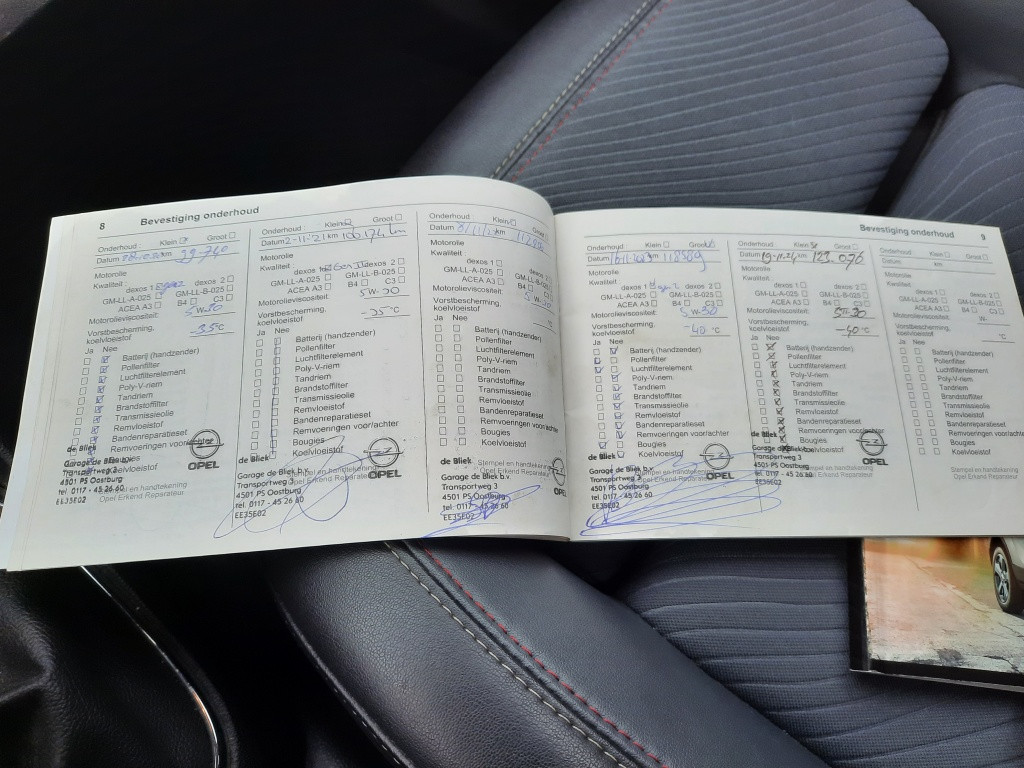 8
Bevestiging onderhoud
Onderhoud : Klein Groot
Datum km
Motorolie
Kwaliteit :
dexos 1 dexos 2
GM-LL-A-025 GM-LL-B-025
ACEA A3 B4 C3
Motorolieviscositeit: 5W-30
Vorstbescherming,
koelvloeistof -35°C
Ja Nee
Batterij (handzender)
Pollenfilter
Luchtfilterelement
Poly-V-riem
Tandriem
Brandstoffilter
Transmissieolie
Remvloeistof
Bandenreparatieset
Remvoeringen voor/achter
Bougies
Koelvloeistof
de Bliek
Garage de Bliek b.v.
Transportweg 3
4501 PS Oostburg
tel. 0117 - 45 26 60
EE35E02
Stempel en handtekening
Opel Erkend Reparateur
OPEL
Onderhoud : Klein Groot
Datum 2-11-21 km 100.174 km
Motorolie
Kwaliteit :
dexos 1 dexos 2
GM-LL-A-025 GM-LL-B-025
ACEA A3 B4 C3
Motorolieviscositeit: 5W-30
Vorstbescherming,
koelvloeistof -35°C
Ja Nee
Batterij (handzender)
Pollenfilter
Luchtfilterelement
Poly-V-riem
Tandriem
Brandstoffilter
Transmissieolie
Remvloeistof
Bandenreparatieset
Remvoeringen voor/achter
Bougies
Koelvloeistof
de Bliek
Garage de Bliek b.v.
Transportweg 3
4501 PS Oostburg
tel. 0117 - 45 26 60
EE35E02
Stempel en handtekening
Opel Erkend Reparateur
OPEL
Onderhoud : Klein Groot
Datum km
Motorolie
Kwaliteit :
dexos 1 dexos 2
GM-LL-A-025 GM-LL-B-025
ACEA A3 B4 C3
Motorolieviscositeit:
Vorstbescherming,
koelvloeistof °C
Ja Nee
Batterij (handzender)
Pollenfilter
Luchtfilterelement
Poly-V-riem
Tandriem
Brandstoffilter
Transmissieolie
Remvloeistof
Bandenreparatieset
Remvoeringen voor/achter
Bougies
Koelvloeistof
de Bliek
Garage de Bliek b.v.
Transportweg 3
4501 PS Oostburg
tel. 0117 - 45 26 60
EE35E02
Stempel en handtekening
Opel Erkend Reparateur
OPEL
Bevestiging onderhoud
9
Onderhoud : Klein Groot
Datum km 118589
Motorolie
Kwaliteit :
dexos 1 dexos 2
GM-LL-A-025 GM-LL-B-025
ACEA A3 B4 C3
Motorolieviscositeit: 5W-30
Vorstbescherming,
koelvloeistof -40°C
Ja Nee
Batterij (handzender)
Pollenfilter
Luchtfilterelement
Poly-V-riem
Tandriem
Brandstoffilter
Transmissieolie
Remvloeistof
Bandenreparatieset
Remvoeringen voor/achter
Bougies
Koelvloeistof
de Bliek
Garage de Bliek b.v.
Transportweg 3
4501 PS Oostburg
tel. 0117 - 45 26 60
EE35E02
Stempel en handtekening
Opel Erkend Reparateur
OPEL
Onderhoud : Klein Groot
Datum 19-11-24 km 123.076
Motorolie
Kwaliteit :
dexos 1 dexos 2
GM-LL-A-025 GM-LL-B-025
ACEA A3 B4 C3
Motorolieviscositeit: 5W-30
Vorstbescherming,
koelvloeistof -40°C
Ja Nee
Batterij (handzender)
Pollenfilter
Luchtfilterelement
Poly-V-riem
Tandriem
Brandstoffilter
Transmissieolie
Remvloeistof
Bandenreparatieset
Remvoeringen voor/achter
Bougies
Koelvloeistof
de Bliek
Garage de Bliek b.v.
Transportweg 3
4501 PS Oostburg
tel. 0117 - 45 26 60
EE35E02
Stempel en handtekening
Opel Erkend Reparateur
OPEL
Onderhoud : Klein Groot
Datum km
Motorolie
Kwaliteit :
dexos 1 dexos 2
GM-LL-A-025 GM-LL-B-025
ACEA A3 B4 C3
Motorolieviscositeit:
W-
Vorstbescherming,
koelvloeistof °C
Ja Nee
Batterij (handzender)
Pollenfilter
Luchtfilterelement
Poly-V-riem
Tandriem
Brandstoffilter
Transmissieolie
Remvloeistof
Bandenreparatieset
Remvoeringen voor/achter
Bougies
Koelvloeistof
Stempel en handtekening
Opel Erkend Reparateur